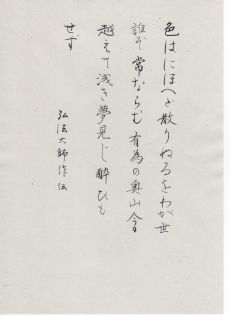 色はにほへど散りぬるをわが世
誰ぞ常ならむ有為の奥山今日
越えて浅き夢見じ酔ひも
せず
弘法大師作伝